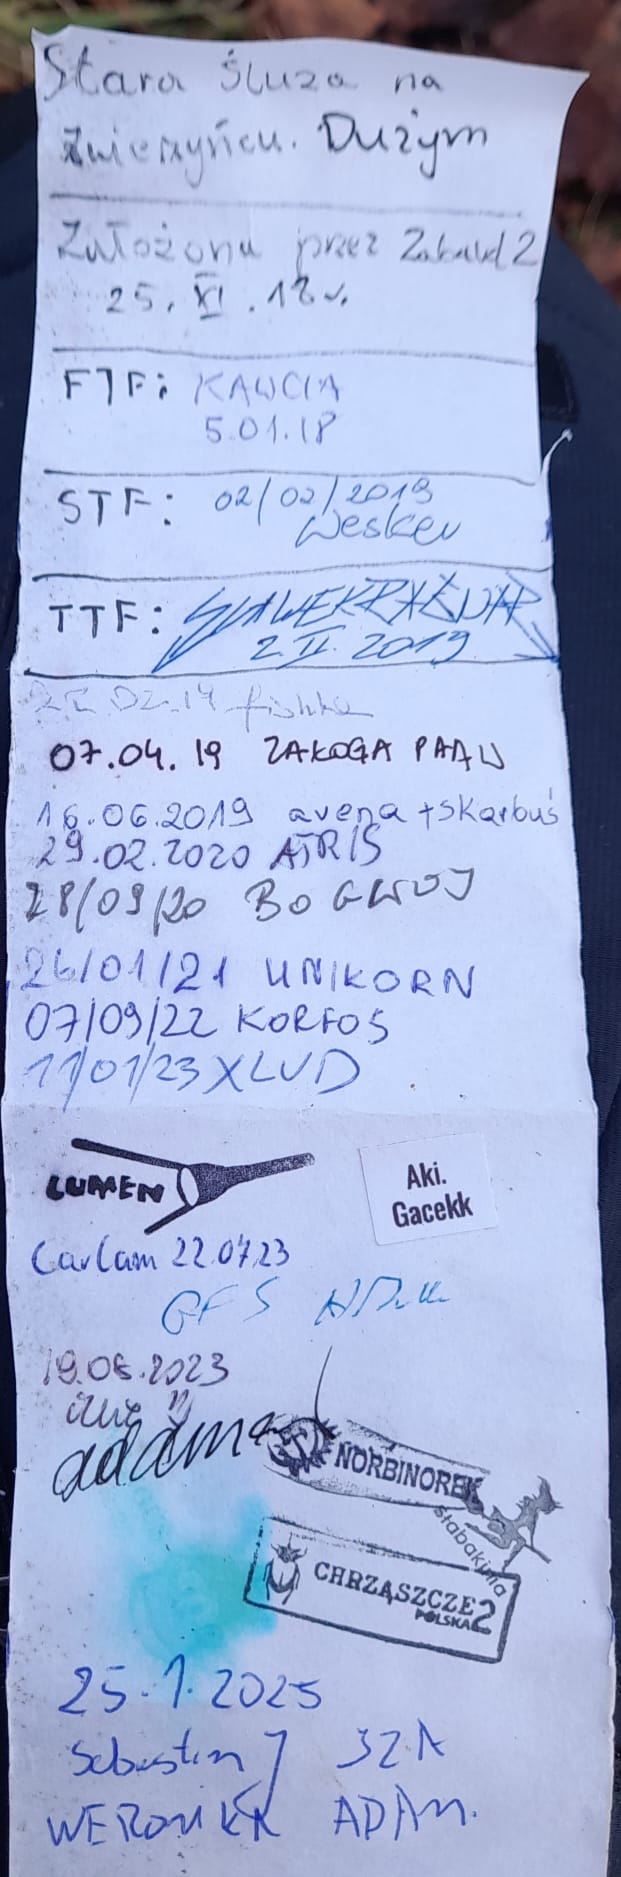 Stara Śluza na
Zwierzyńcu. Dużym
Założona przez
25. XI. 18r.
FTF: KAWCIA
5.01.18
STF: 02/02/2019
Wesker
TTF:
2 II 2019
02.19 fishka
07.04.19 ZAKOGA PAAW
16.06.2019 avena + skarbuś
29.02.2020 ATRIS
28/09/20 BOGWOJ
26/01/21 UNIKORN
07/09/22 KORFOS
11/01/23 XLVD
LUMEN
Aki.
Gacekk
Carlam 22.07.23
GFS
19.08.2023
adama
NORBINOREK
Słabakinia
CHRZĄSZCZE 2
POLSKA
25.1.2025
Sebastian J SZA
WERONIKA ADAM.